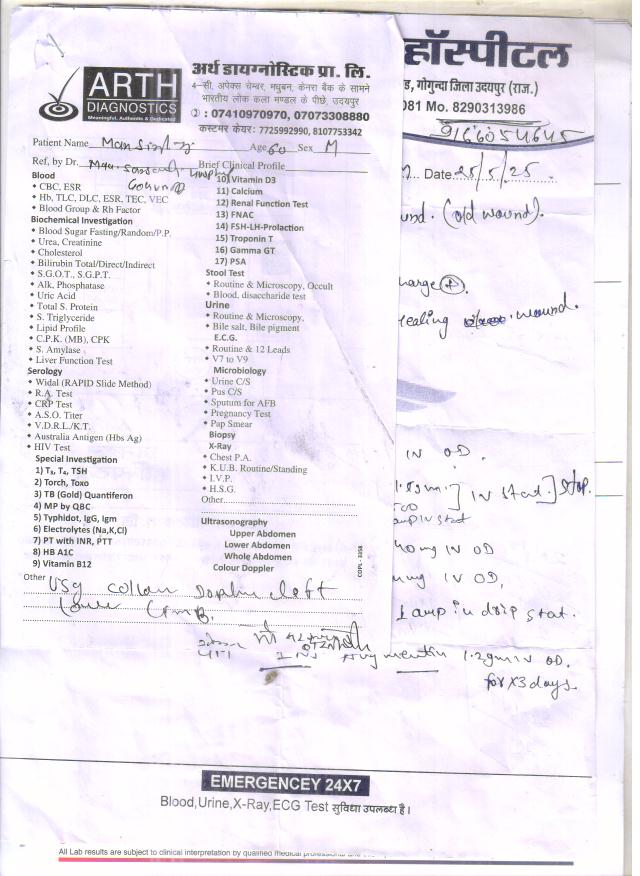 ARTH
DIAGNOSTICS
Meaningful, Authentic & Dedicated
अर्थ डायग्नोस्टिक प्रा. लि.
4-सी, अपेक्स चेम्बर, मधुबन, केनरा बैंक के सामने
भारतीय लोक कला मण्डल के पीछे, उदयपुर
: 07410970970, 07073308880
कस्टमर केयर: 7725992990, 8107753342
Patient Name Man Singh Age 60 Sex M
Ref, by Dr. Brief Clinical Profile
Blood
• CBC, ESR
• Hb, TLC, DLC, ESR, TEC, VEC
• Blood Group & Rh Factor
Biochemical Investigation
• Blood Sugar Fasting/Random/P.P.
• Urea, Creatinine
• Cholesterol
• Bilirubin Total/Direct/Indirect
• S.G.O.T., S.G.P.T.
• Alk, Phosphatase
• Uric Acid
• Total S. Protein
• S. Triglyceride
• Lipid Profile
• C.P.K. (MB), CPK
• S. Amylase
• Liver Function Test
Serology
• Widal (RAPID Slide Method)
• R.A. Test
• CRP Test
• A.S.O. Titer
• V.D.R.L./K.T.
• Australia Antigen (Hbs Ag)
• HIV Test
Special Investigation
1) T₃, T₄, TSH
2) Torch, Toxo
3) TB (Gold) Quantiferon
4) MP by QBC
5) Typhidot, IgG, Igm
6) Electrolytes (Na,K,Cl)
7) PT with INR, PTT
8) HB A1C
9) Vitamin B12
10) Vitamin D3
11) Calcium
12) Renal Function Test
13) FNAC
14) FSH-LH-Prolaction
15) Troponin T
16) Gamma GT
17) PSA
Stool Test
• Routine & Microscopy, Occult
• Blood, disaccharide test
Urine
• Routine & Microscopy,
• Bile salt, Bile pigment
E.C.G.
• Routine & 12 Leads
• V7 to V9
Microbiology
• Urine C/S
• Pus C/S
• Sputum for AFB
• Pregnancy Test
• Pap Smear
Biopsy
X-Ray
• Chest P.A.
• K.U.B. Routine/Standing
• I.V.P.
• H.S.G.
Other
Ultrasonography
Upper Abdomen
Lower Abdomen
Whole Abdomen
Colour Doppler
COPL - 3258
Other USG Doppler left
हॉस्पीटल
ड, गोगुन्दा जिला उदयपुर (राज.)
081 Mo. 8290313986
9166054645
Date 25/5/25
und. (old wound).
harge (+)
healing wound.
IN OD.
IN stat. ] stop.
amp IN stat
40mg IV OD
mg IV OD,
1 amp in drip stat.
1.2gm IV OD.
for x3 days.
EMERGENCEY 24X7
Blood,Urine,X-Ray,ECG Test सुविधा उपलब्ध है।
All Lab results are subject to clinical interpretation by